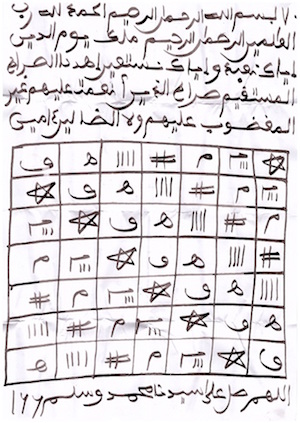 بسم الله الرحمن الرحيم الحمد لله رب
العلمين الرحمن الرحيم ملك يوم الدين
اياك نعبد واياك نستعين اهدنا الصراط
المستقيم صراط الذين أنعمت عليهم غير
المغضوب عليهم ولا الضالين امين
☆ ااا م # |||| ه و
ااا م # |||| ه و ☆
م # |||| ه و ☆ ااا
# |||| ه و ☆ ااا م
|||| ه و ☆ ااا م #
ه و ☆ ااا م # ||||
و ☆ ااا م # |||| ه
اللهم صل على سيدنا محمد وسلم